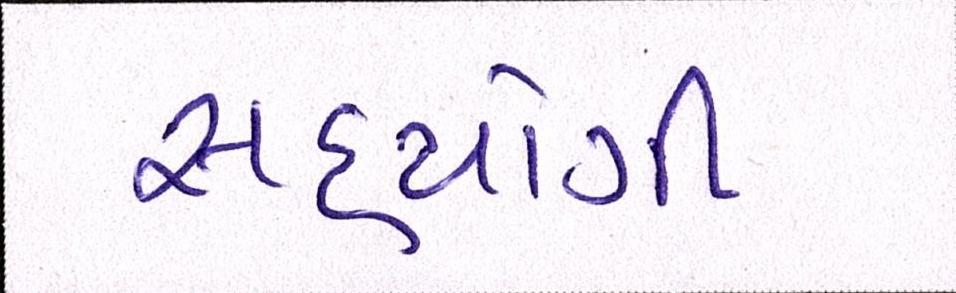 સહયોગી